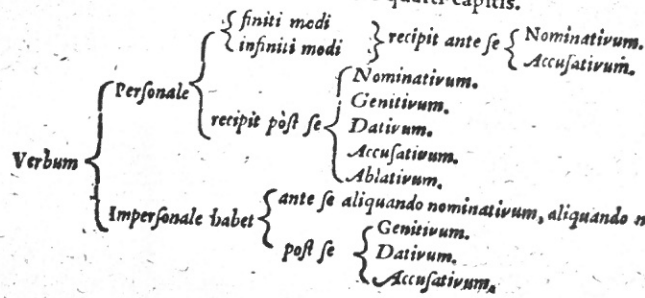 quarti capitis.
finiti modi
infiniti modi
recipit ante ſe
Nominativum.
Accuſativum.
Perſonale
recipit pòſt ſe
Nominativum.
Genitivum.
Dativum.
Accuſativum.
Ablativum.
Verbum
Imperſonale habet
ante ſe aliquando nominativum, aliquando
poſt ſe
Genitivum.
Dativum.
Accuſativum.